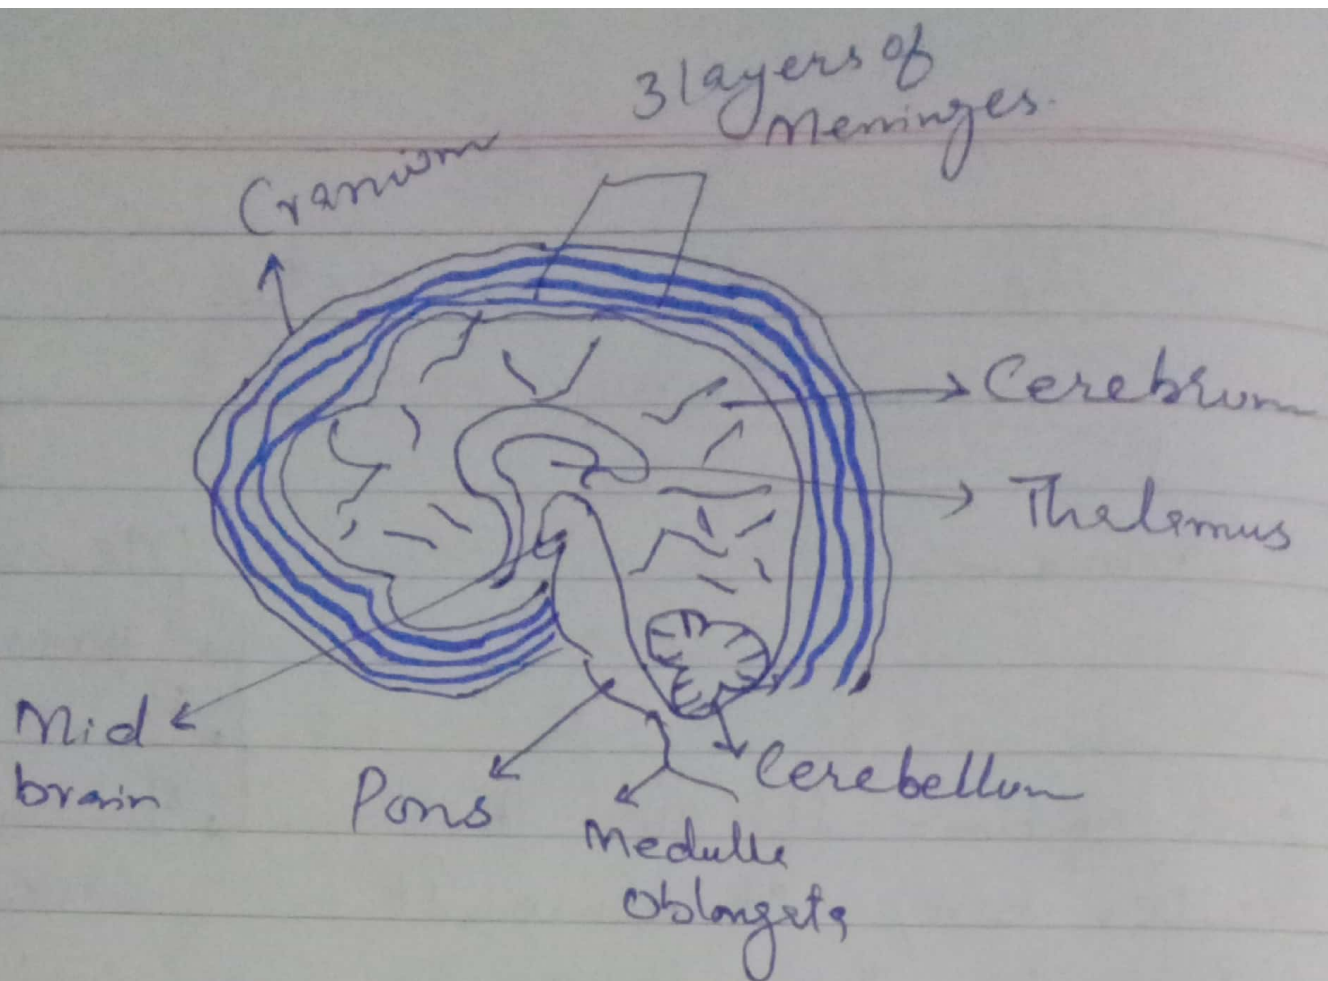 3 layers of
Menninges.
Cranium
Cerebrum
Thelemus
Mid
brain
Pons
Cerebellum
Medulla
Oblongata